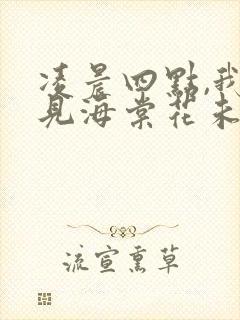 凌晨四點,我
見海棠花未
流宣熏草